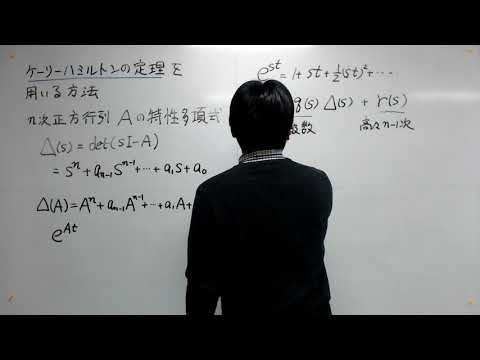 ケーリー・ハミルトンの定理を
用いる方法
n次正方行引 Aの特性多項式
Δ(s) = det(sI-A)
= sⁿ + aₙ₋₁sⁿ⁻¹ + ⋯ + a₁s + a₀
Δ(A) = Aⁿ + aₙ₋₁Aⁿ⁻¹ + ⋯ + a₁A +
e^{At}
e^{st} = 1 + st + ½(st)² + ⋯
q(s) Δ(s) + r(s)
級数 高々n-1次